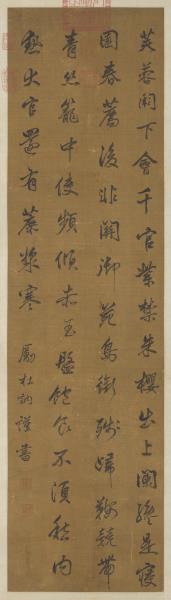 芙蓉闕下會千官紫禁朱櫻出上闌纔是寢
園春薦後非關御苑鳥銜殘歸鞍競帶
青絲籠中使頻傾赤玉盤飽食不須愁內
熱大官還有蔗漿寒
勵杜訥謹書